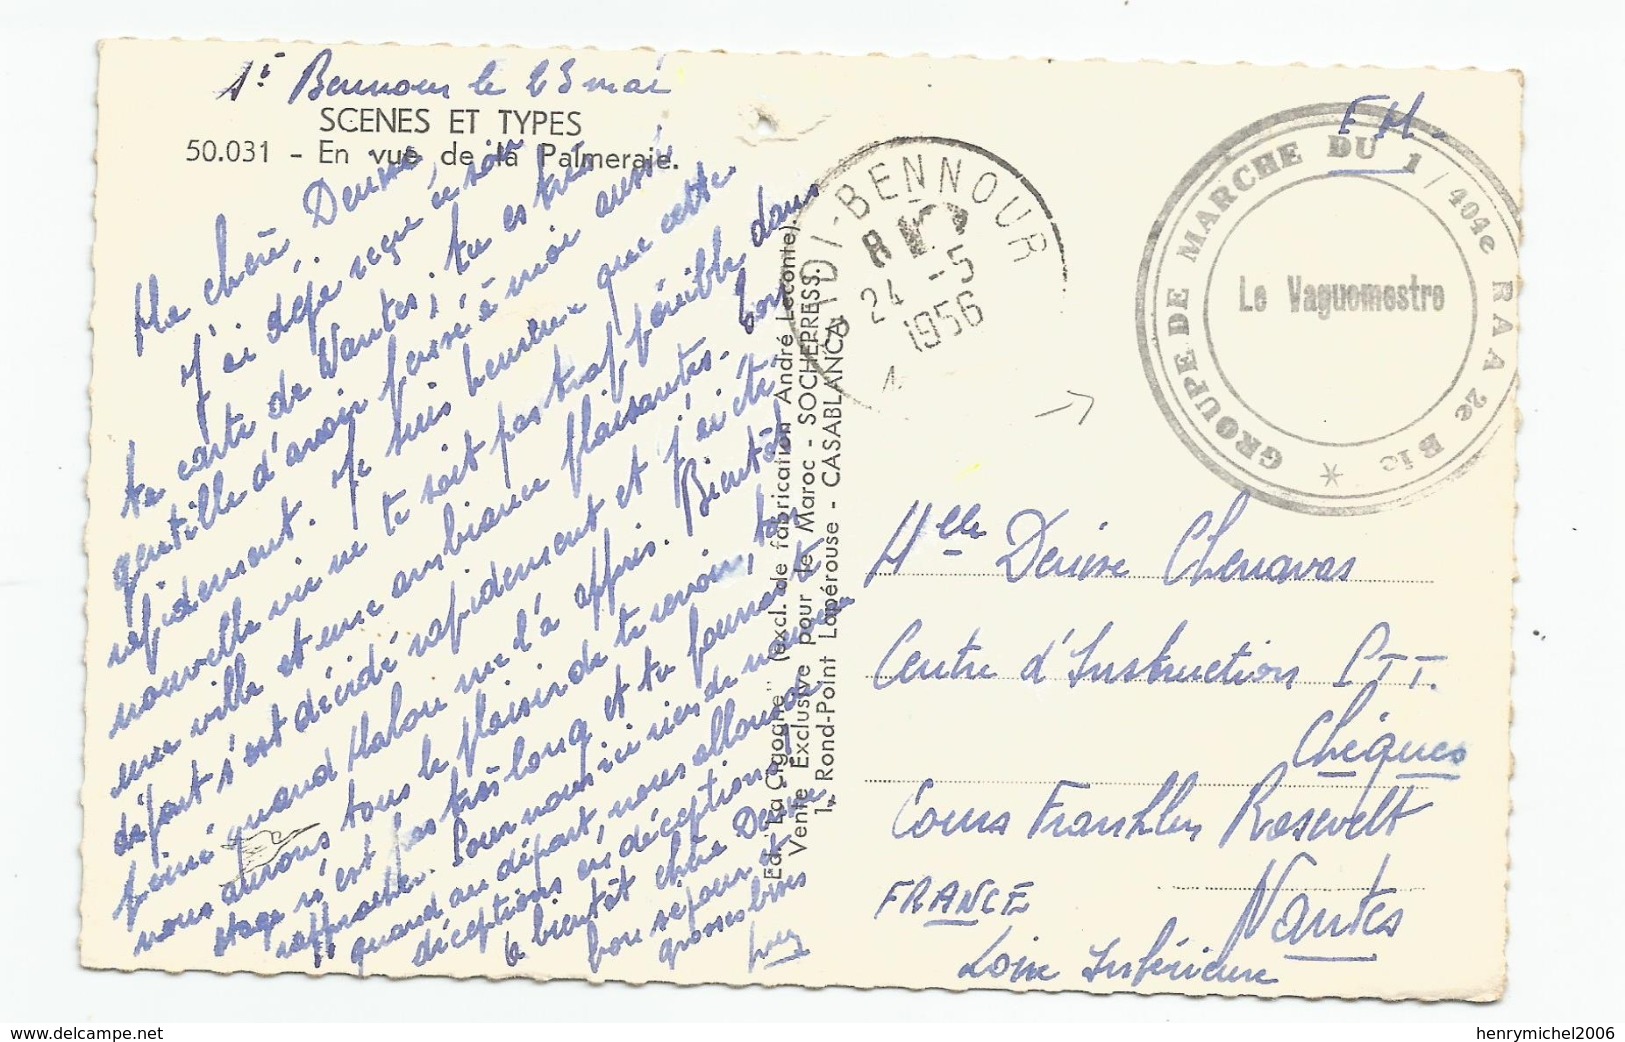 Sᵗ Bennour le 23 mai
SCENES ET TYPES
50.031 - En vue de la Palmeraie.
Ma chère Denise,
J'ai déjà reçu ce soir
ta carte de Nantes; tu es très
gentille d'avoir pensé à moi aussi
rapidement. Je suis heureux que cette
nouvelle vie ne te soit pas trop pénible dans
une ville et une ambiance plaisantes. Ton
départ s'est décidé rapidement et j'ai été
peiné quand Malou me l'a appris. Bientôt
nous aurons tous le plaisir de te revoir, ton
stage n'est pas très long et tu pourras te
rapprocher. Pour nous ici rien de nouveau
quant au départ, nous allons de
déceptions en déceptions.
à bientôt chère Denise
bon séjour et
grosses bises
Ed. "La Cigogne" (excl. de fabrication André Leconte).
Vente Exclusive pour le Maroc - SOCHEPRESS.
1, Rond-Point Lapérouse - CASABLANCA
SIDI-BENNOUR
8
24 -5
1956
F M.
GROUPE DE MARCHE DU 1/404e RAA 2e Bie *
Le Vaguemestre
Mˡˡᵉ Denise Chenavas
Centre d'Instruction PTT.
Chèques
Cours Franklin Rosevelt
FRANCE
Nantes
Loire Inférieure
delcampe.net
henrymichel2006